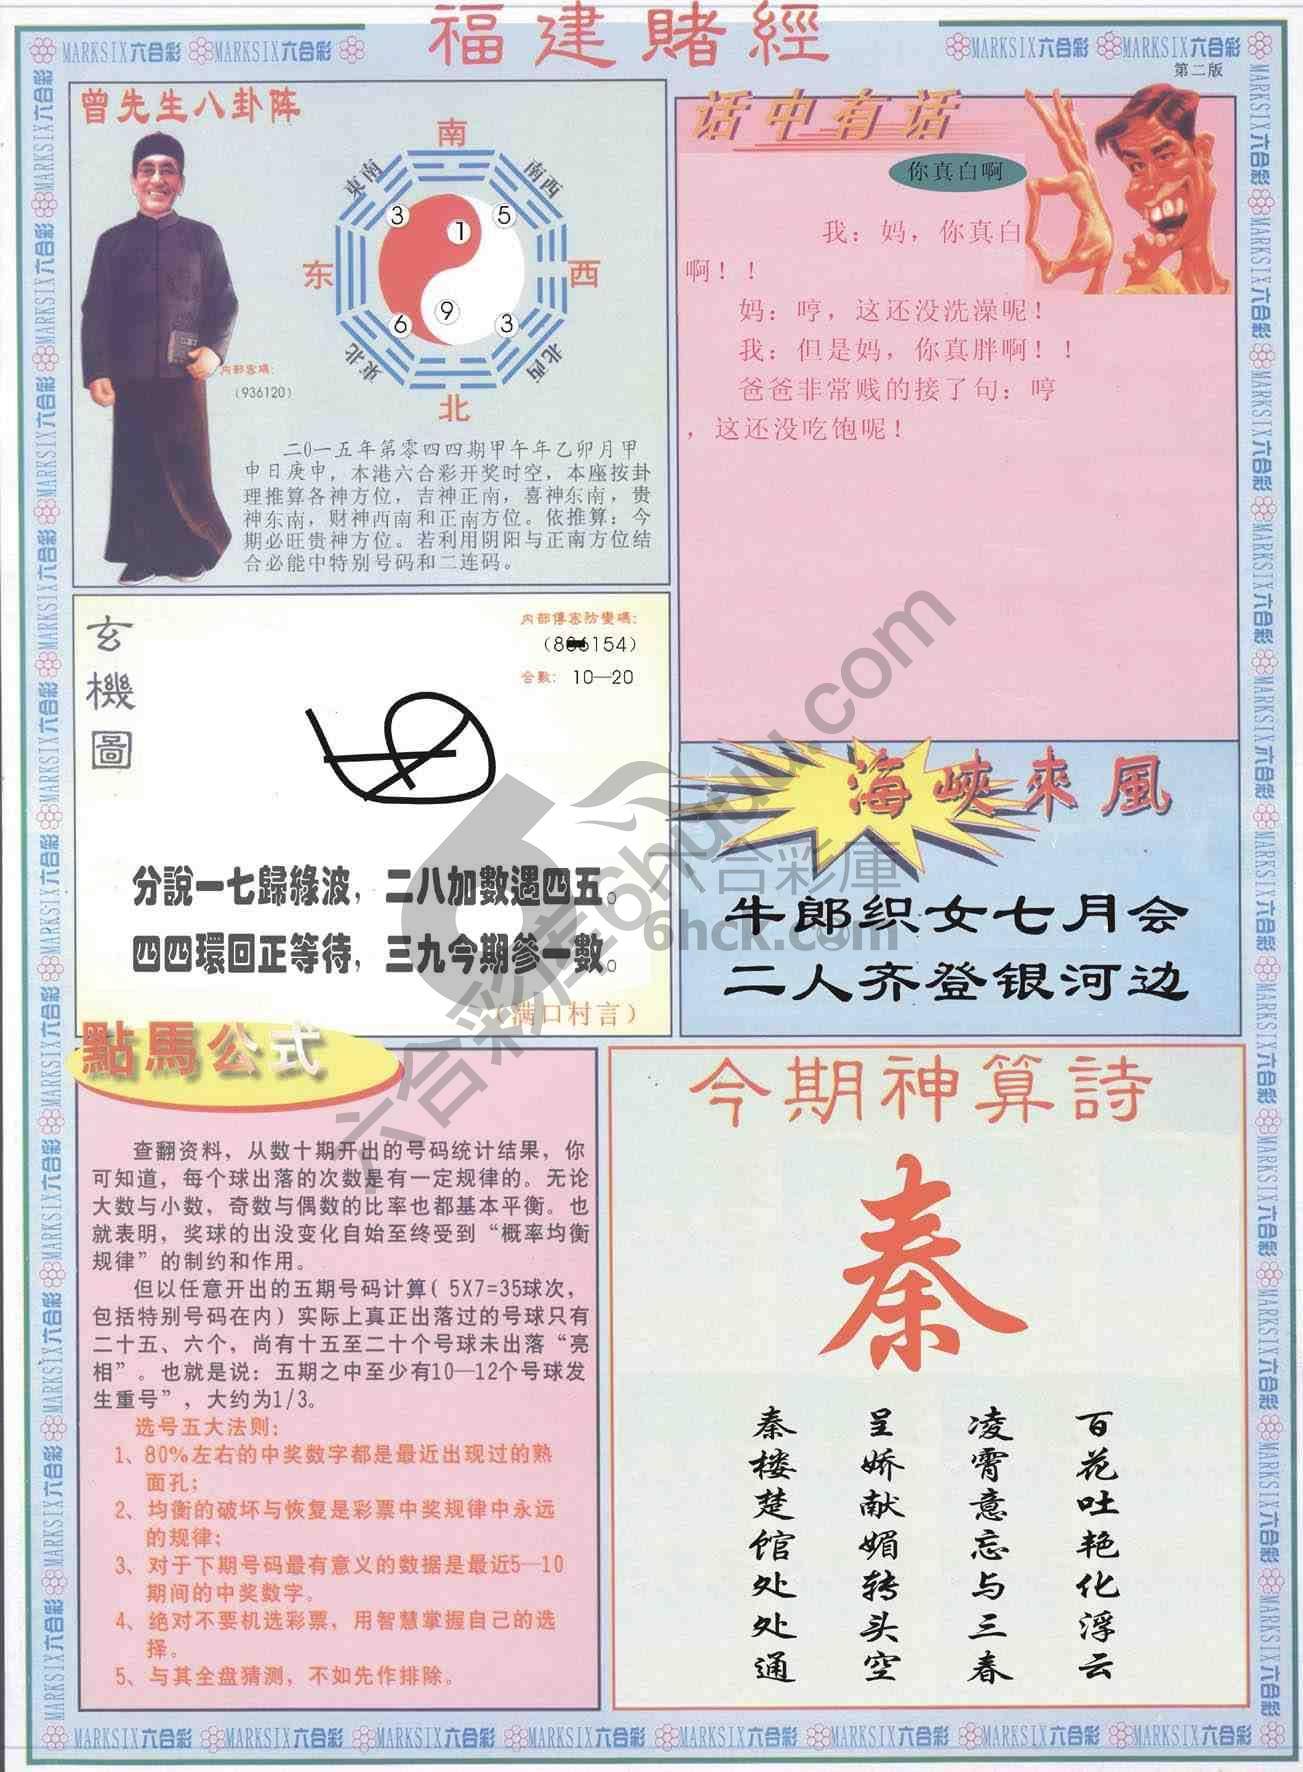 福建賭經
MARKSIX六合彩 MARKSIX六合彩
MARKSIX六合彩 MARKSIX六合彩
第二版
曾先生八卦阵
南
東南
南西
东
西
東北
北西
北
3
1
5
6
9
3
内部密碼:
(936120)
二0一五年第零四四期甲午年乙卯月甲
申日庚申，本港六合彩开奖时空，本座按卦
理推算各神方位，吉神正南，喜神东南，贵
神东南，财神西南和正南方位。依推算：今
期必旺贵神方位。若利用阴阳与正南方位结
合必能中特别号码和二连码。
话中有话
你真白啊
我：妈，你真白
啊！！
妈：哼，这还没洗澡呢！
我：但是妈，你真胖啊！！
爸爸非常贱的接了句：哼
，这还没吃饱呢！
玄機圖
内部傳密防變碼:
154)
合數: 10—20
分說一七歸綠波，二八加數遇四五。
四四環回正等待，三九今期參一數。
(满口村言)
海峽來風
牛郎织女七月会
二人齐登银河边
六合彩庫
6hck.com
六合彩库6huuu.com
點馬公式
查翻资料，从数十期开出的号码统计结果，你
可知道，每个球出落的次数是有一定规律的。无论
大数与小数，奇数与偶数的比率也都基本平衡。也
就表明，奖球的出没变化自始至终受到“概率均衡
规律”的制约和作用。
但以任意开出的五期号码计算( 5X7=35球次，
包括特别号码在内) 实际上真正出落过的号球只有
二十五、六个，尚有十五至二十个号球未出落“亮
相”。也就是说：五期之中至少有10—12个号球发
生重号”，大约为1/3。
选号五大法则:
1、80%左右的中奖数字都是最近出现过的熟
面孔;
2、均衡的破坏与恢复是彩票中奖规律中永远
的规律;
3、对于下期号码最有意义的数据是最近5—10
期间的中奖数字。
4、绝对不要机选彩票，用智慧掌握自己的选
择。
5、与其全盘猜测，不如先作排除。
今期神算詩
秦
百花吐艳化浮云
凌霄意忘与三春
呈娇献媚转头空
秦楼楚馆处处通
MARKSIX六合彩 MARKSIX六合彩 MARKSIX六合彩 MARKSIX六合彩 MARKSIX六合彩 MARKSIX六合彩 MARKSIX六合彩 MARKSIX六合彩